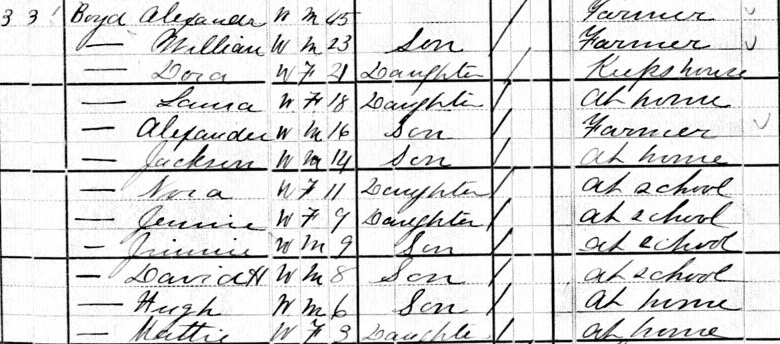 3 3 Boyd Alexander W M 45 / Farmer
— William W M 23 Son / Farmer
— Dora W F 21 Daughter / Keeps house
— Laura W F 18 Daughter / At home
— Alexander W M 16 Son / Farmer
— Jackson W M 14 Son / At home
— Nora W F 11 Daughter / At school
— Jennie W F 9 Daughter / At school
— Jimmie W M 9 Son / At school
— David H W M 8 Son / At school
— Hugh W M 6 Son / At home
— Mattie W F 3 Daughter / At home